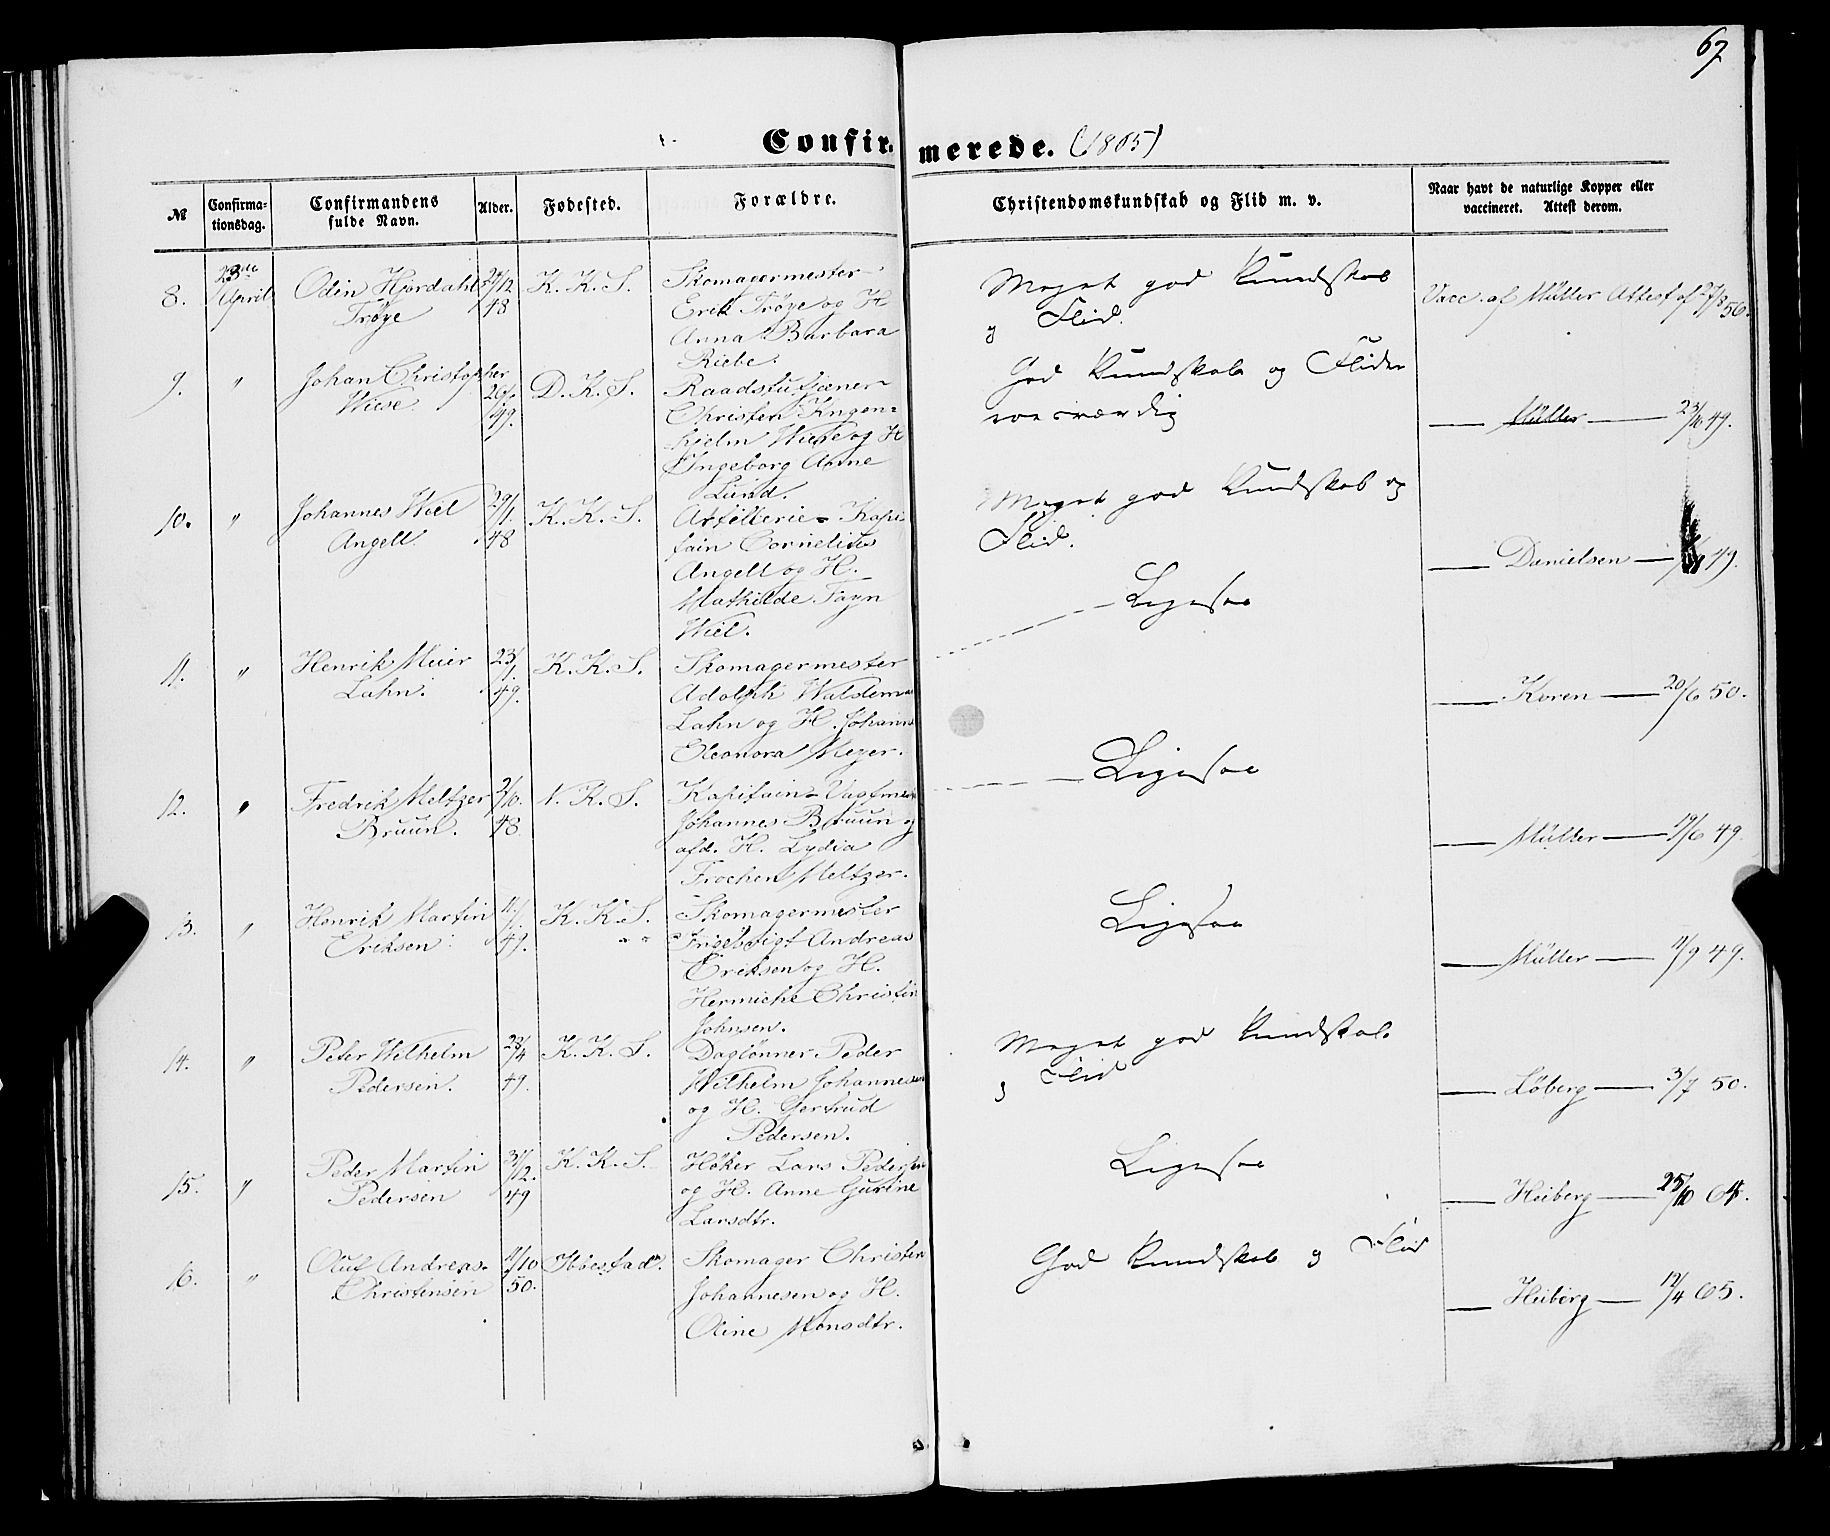 67
Confirmerede. (1865)
№
Confirma-
tionsdag.
Confirmandens
fulde Navn.
Alder.
Fødested.
Forældre.
Christendomskundskab og Flid m. v.
Naar havt de naturlige Kopper eller
vaccineret. Attest derom.
8.
23de
April
Odin Hjordahl
Trøye
48
K. K. S.
Skomagermester
Erik Trøye og H
Anna Barbara
Riebe.
Meget god Kundskab
og Flid.
Vacc. af Müller Attest af 27/8 56.
9.
"
Johan Christopher
Wiese.
49.
D. K. S.
Raadstutjener
Christen
hjelm Wiese og H
Ingeborg Anne
Lund.
God Kundskab og Flid
roesværdig
— Müller — 23/10 49.
10.
"
Johannes Wiel
Angell.
29/1.
48
K. K. S.
Artillerie-Kapi-
tain Cornelius
Angell og H.
Mathilde Fayn
Wiel.
Meget god Kundskab og
Flid.
— Danielsen — 49.
11.
"
Henrik Meier
Lahn.
23/1.
49.
K. K. S.
Skomagermester
Adolph Waldemar
Lahn og H. Johanne
Eleonora Meyer.
Ligesaa
— Koren — 20/6 50.
12.
"
Fredrik Meltzer
Bruun.
2/10.
48.
N. K. S.
Kapitain-Vagtmester
Johannes Bruun og
afd. H. Lydia
Frochen Meltzer.
Ligesaa
— Müller — 19/6 49.
13.
"
Henrik Martin
Eriksen.
11/1.
49.
K. K. S.
Skomagermester
Ingebrigt Andreas
Eriksen og H.
Hermiche Christin
Johnsen.
Ligesaa
— Müller — 11/9 49.
14.
"
Peter Wilhelm
Pedersen.
23/4
49.
K. K. S.
Daglønner Peder
Wilhelm Johannesen
og H. Gertrud
Pedersen.
Meget god Kundskab
og Flid
— Løberg — 3/7 50.
15.
"
Peder Martin
Pedersen
31/12.
49
K. K. S.
Høker Lars Pedersen
og H. Anne Gurine
Larsdtr.
Ligesaa
— Heiberg — 25/10 64.
16.
"
Oluf Andreas
Christensen
11/10
50.
Ibbestad.
Skomager Christen
Johannesen og H.
Oline Monsdtr.
God Kundskab og Flid
— Heiberg — 12/4 65.